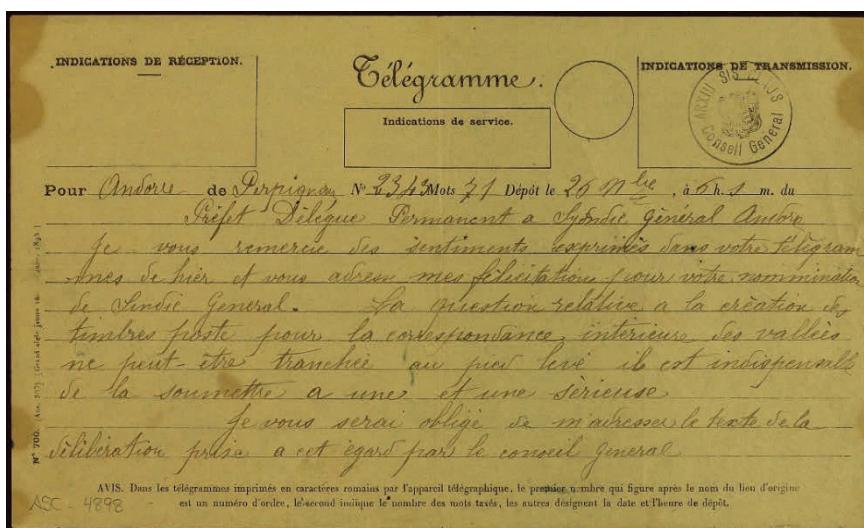 INDICATIONS DE RÉCEPTION.
Télégramme.
INDICATIONS DE TRANSMISSION.
Indications de service.
ARXIU SIS CLAUS
Consell General
Pour Andorre de Perpignan Nº 2343 Mots 71 Dépôt le 26 Nbre, à 6 h. s m. du
Préfet Délégue Permanent a Syndic général Andorre
Je vous remercie des sentiments exprimés dans votre télégram
mes de hier et vous adresse mes félicitation pour votre nommination
de Sindic General. La question relative a la création des
timbres poste pour la correspondance intérieure des vallées
ne peut-être tranchée au pied levé il est indispensable
de la soumettre a une et une sérieuse
Je vous serai obligé de m'adresser le texte de la
délibération prise a cet égard par le conseil General
AVIS. Dans les télégrammes imprimés en caractères romains par l'appareil télégraphique, le premier nombre qui figure après le nom du lieu d'origine
est un numéro d'ordre, le second indique le nombre des mots taxés, les autres désignent la date et l'heure de dépôt.
ASC - 4898
Nº 700.